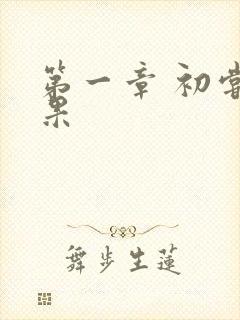 第一章 初尝
果
舞步生莲